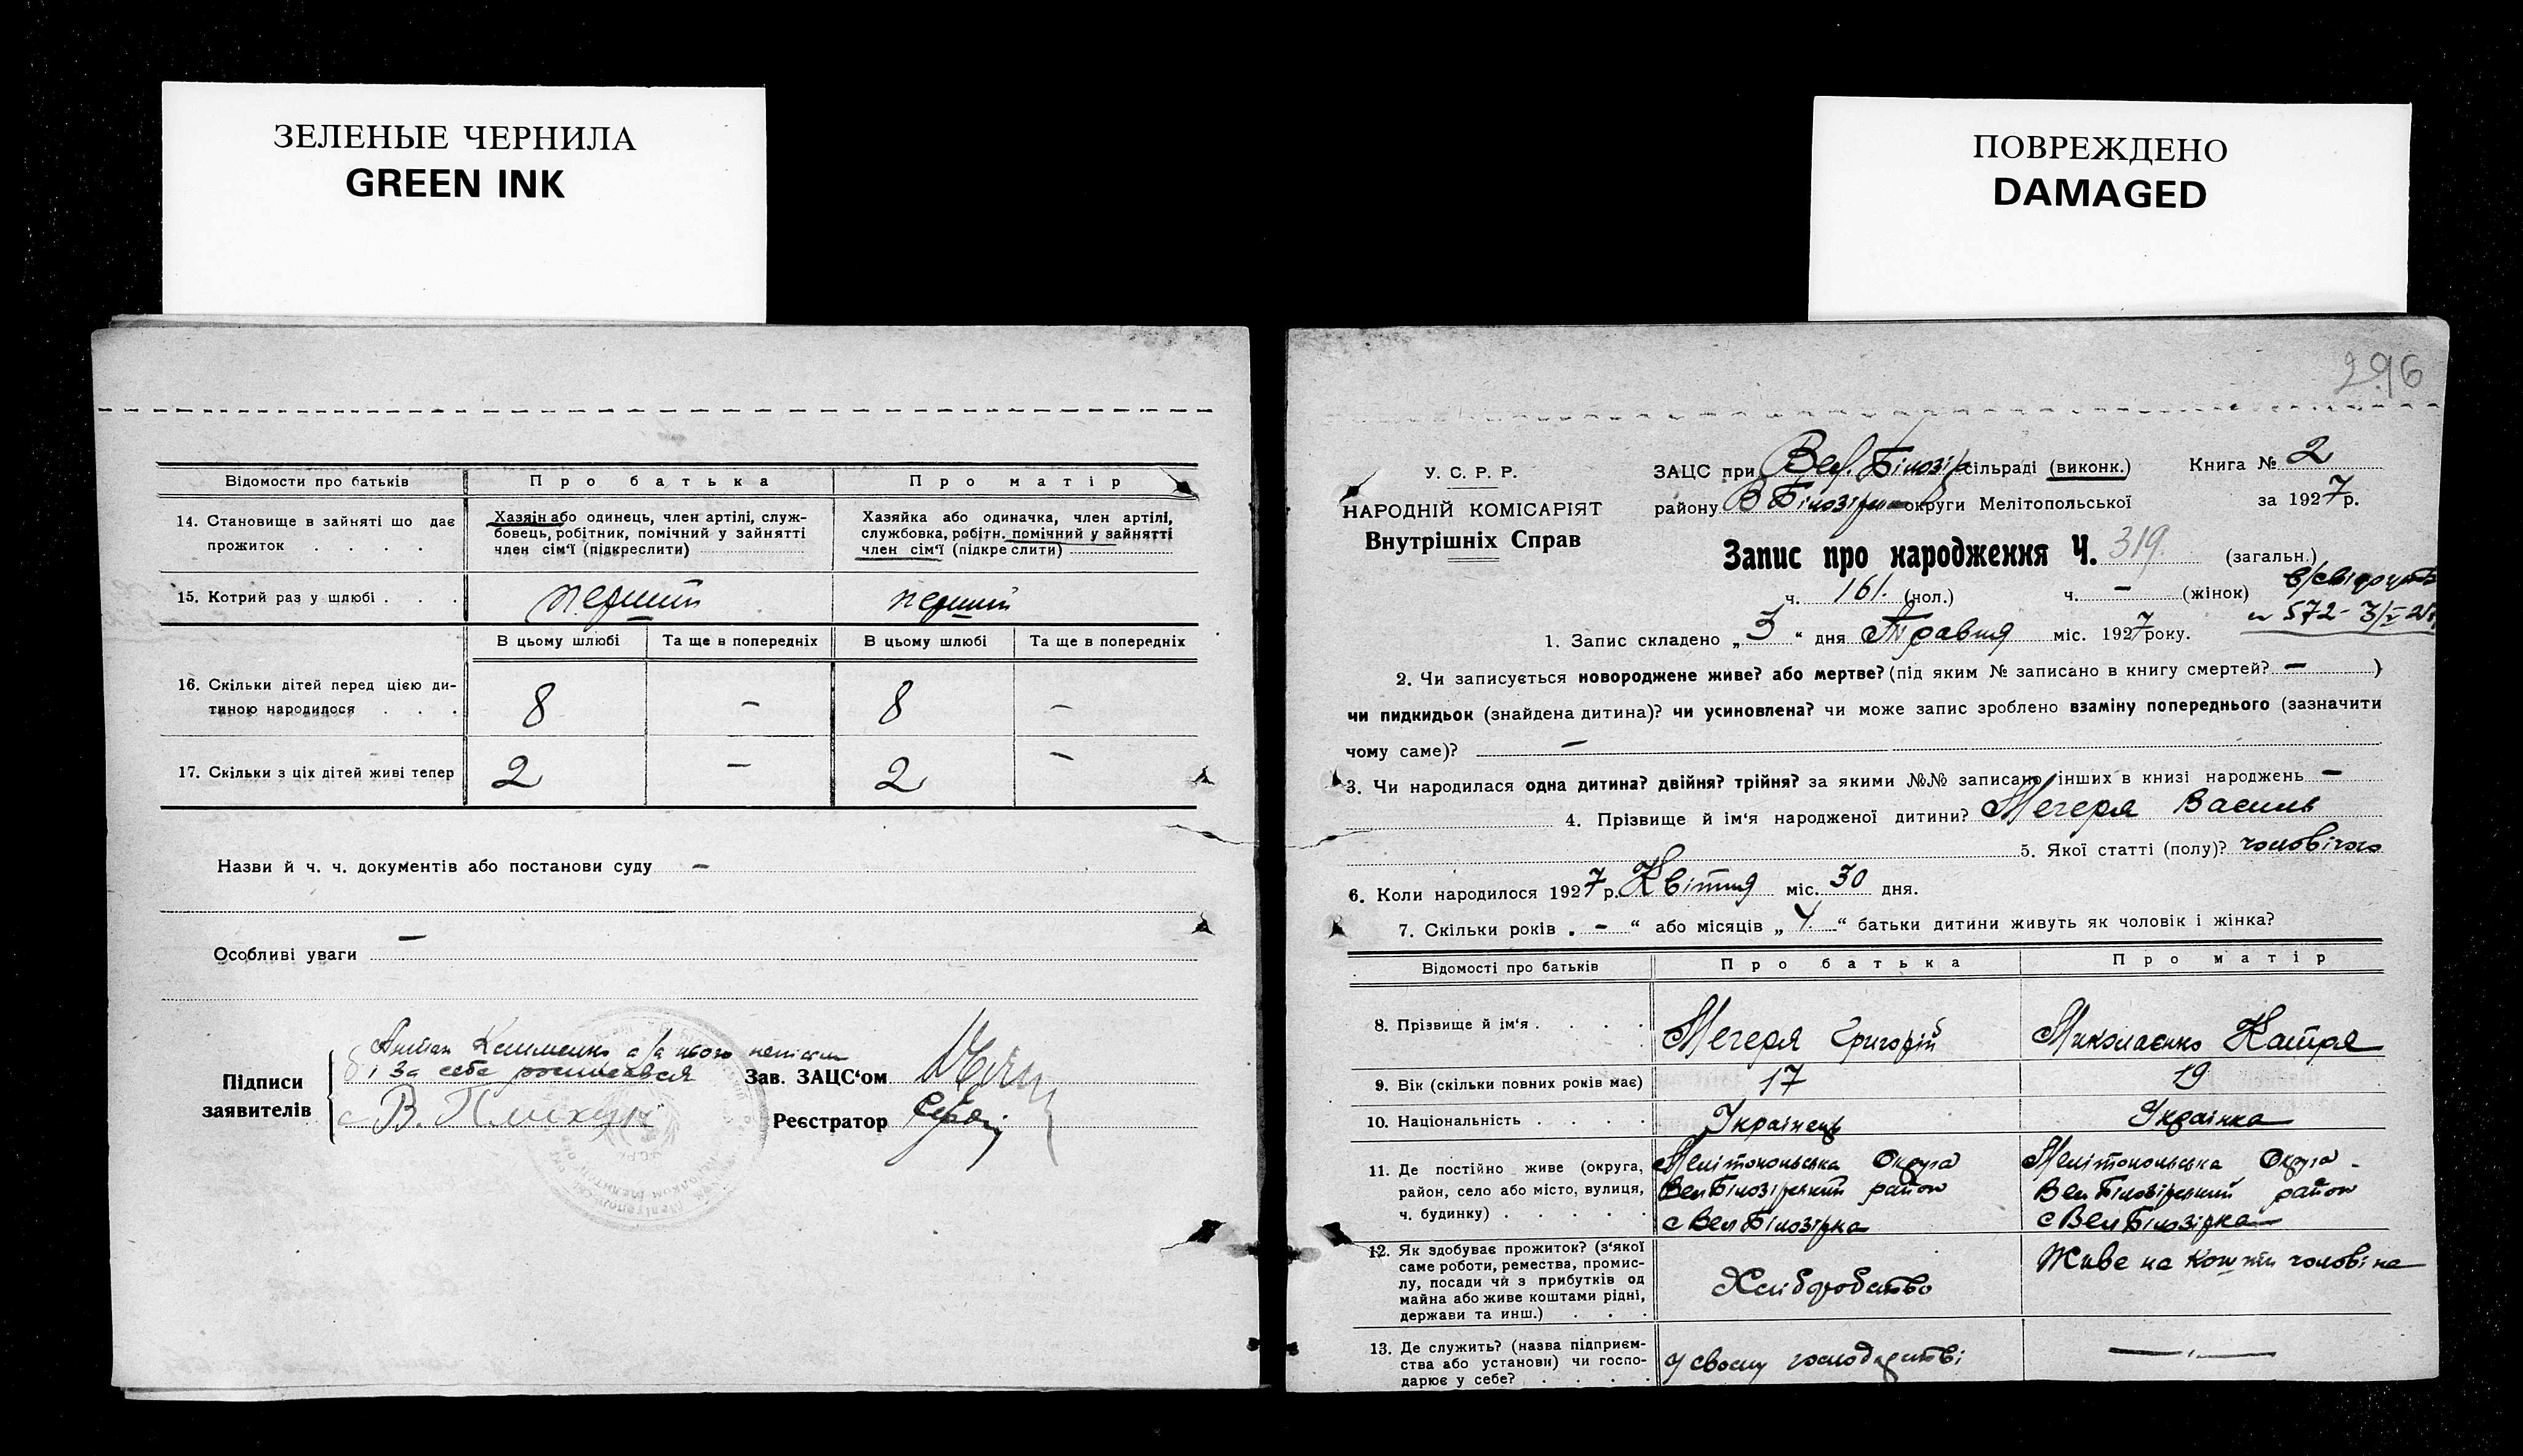 ЗЕЛЕНЫЕ ЧЕРНИЛА
GREEN INK
ПОВРЕЖДЕНО
DAMAGED
Відомости про батьків Про батька Про матір
14. Становище в зайняті що дає прожиток . . . .
Хазяін або одинець, член артілі, служ-
бовець, робітник, помічний у зайнятті
член сім'ї (підкреслити)
Хазяйка або одиначка, член артілі,
службовка, робітн. помічний у зайнятті
член сім'ї (підкреслити)
15. Котрий раз у шлюбі . . . перший перший
В цьому шлюбі Та ще в попередніх В цьому шлюбі Та ще в попередніх
16. Скільки дітей перед цією ди-
тиною народилося . . . 8 – 8 –
17. Скільки з ціх дітей живі тепер 2 – 2 –
Назви й ч. ч. документів або постанови суду –
Особливі уваги –
Підписи
заявителів
і за себе росписався
Зав. ЗАЦС'ом
В.
Реєстратор
296
У. С. Р. Р.
НАРОДНІЙ КОМІСАРІЯТ
Внутрішніх Справ
ЗАЦС при Вел. Білозір сільраді (виконк.) Книга № 2
району В Білозірск округи Мелітопольської за 1927 р.
Запис про народження Ч. 319. (загальн.)
ч. 161. (чол.) ч. – (жінок)
№ 572
1. Запис складено „3“ дня Травня міс. 1927 року.
2. Чи записується новороджене живе? або мертве? (під яким № записано в книгу смертей? – )
чи пидкидьок (знайдена дитина)? чи усиновлена? чи може запис зроблено взаміну попереднього (зазначити
чому саме)? –
3. Чи народилася одна дитина? двійня? трійня? за якими №№ записано інших в книзі народжень –
4. Прізвище й ім'я народженої дитини? Мегеря Василь
5. Якої статті (полу)? чоловічого
6. Коли народилося 1927 р. Квітня міс. 30 дня.
7. Скільки років . – “ або місяців „ 4. “ батьки дитини живуть як чоловік і жінка?
Відомості про батьків Про батька Про матір
8. Прізвище й ім'я . . . . Мегеря Григорій Миколаєнко Катря
9. Вік (скільки повних років має) 17 19
10. Національність . . . . Українець Українка
11. Де постійно живе (округа,
район, село або місто, вулиця,
ч. будинку) . . . . .
Мелітопольська Округа
Вел Білозірський район
с Вел Білозірка
Мелітопольська Округа
Вел Білозірський район
с Вел Білозірка
12. Як здобуває прожиток? (з'якої
саме роботи, ремества, промис-
лу, посади чи з прибутків од
майна або живе коштами рідні,
держави та инш.) . . .
Хліборобство
Живе на кошти чоловіка
13. Де служить? (назва підприєм-
ства або установи) чи госпо-
дарює у себе? . . . .
У своєму господарстві